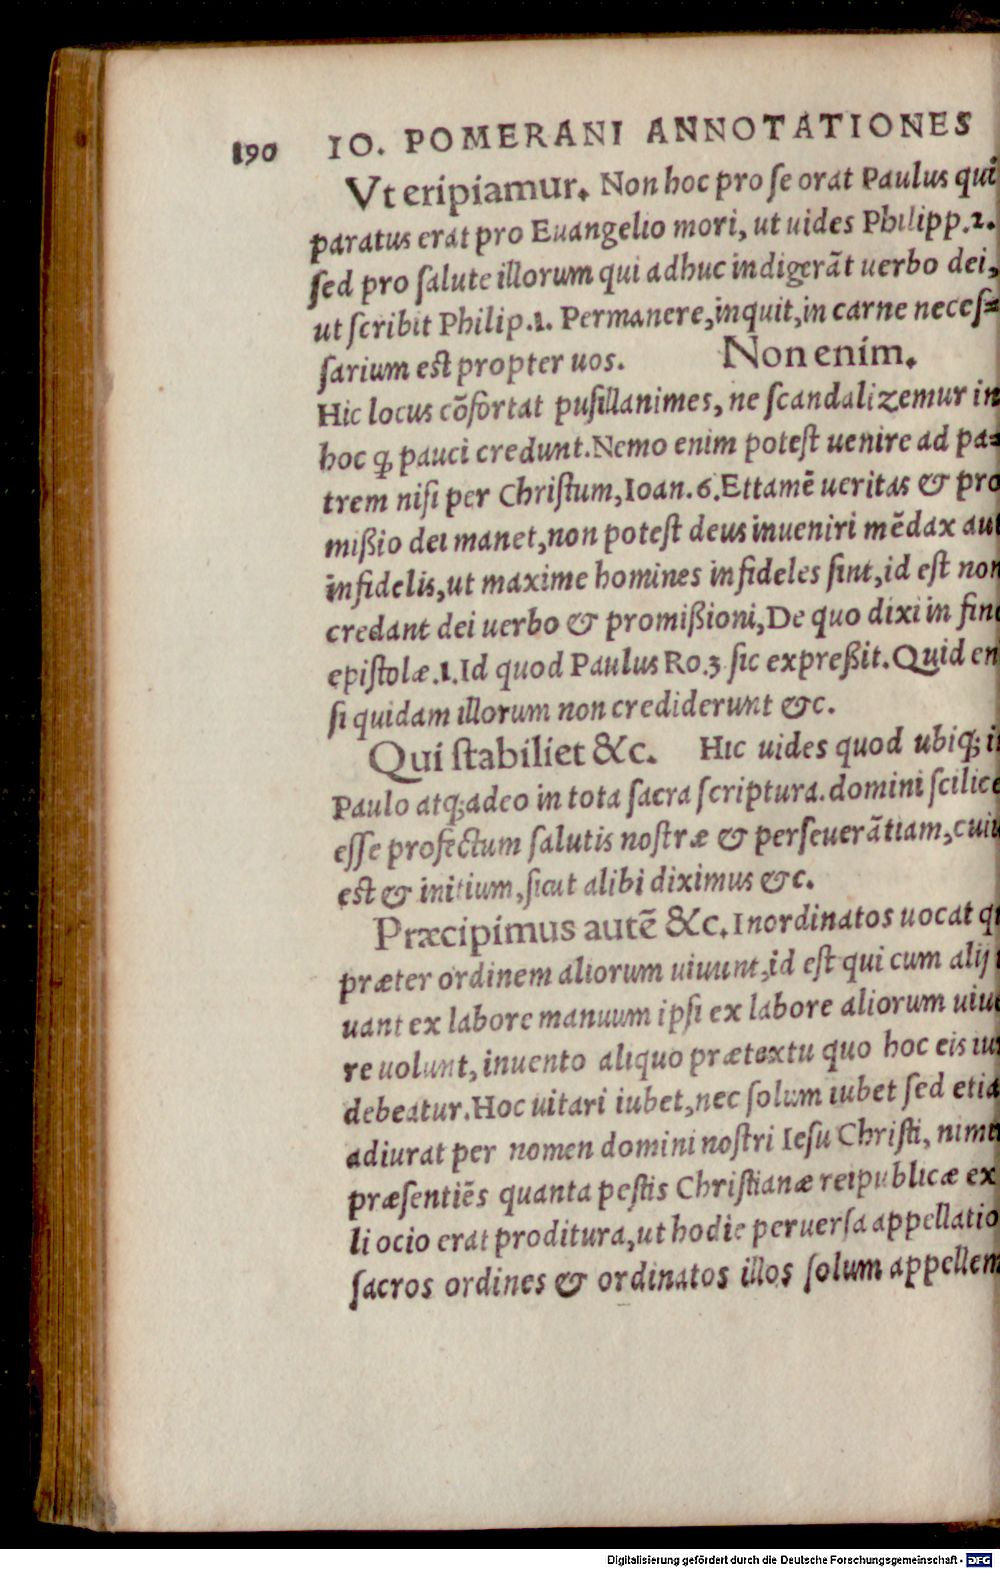 190 IO. POMERANI ANNOTATIONES
Vt eripiamur. Non hoc pro ſe orat Paulus qui
paratus erat pro Euangelio mori, ut uides Philipp.2.
ſed pro ſalute illorum qui adhuc indigerãt uerbo dei,
ut ſcribit Philip.1. Permanere, inquit, in carne neceſ=
ſarium est propter uos. Non enim.
Hic locus cõfortat puſillanimes, ne ſcandalizemur in
hoc ꝙ pauci credunt. Nemo enim poteſt uenire ad pa=
trem niſi per Chriſtum, Ioan. 6. Et tamẽ ueritas & pro
mißio dei manet, non poteſt deus inueniri mẽdax aut
infidelis, ut maxime homines infideles ſint, id eſt non
credant dei uerbo & promißioni, De quo dixi in fine
epiſtolæ .1. Id quod Paulus Ro.3. ſic expreßit. Quid en
ſi quidam illorum non crediderunt &c.
Qui ſtabiliet &c. Hic uides quod ubiq;
Paulo atq; adeo in tota ſacra ſcriptura. domini ſcilice
eſſe profectum ſalutis noſtræ & perſeuerãtiam, cuiu
est & initium, ſicut alibi diximus &c.
Præcipimus autẽ &c. Inordinatos uocat
præter ordinem aliorum uiuunt, id eſt qui cum alij
uant ex labore manuum ipſi ex labore aliorum uiue
re uolunt, inuento aliquo prætextu quo hoc eis iur
debeatur. Hoc uitari iubet, nec ſolum iubet ſed etia
adiurat per nomen domini noſtri Ieſu Chriſti, nimi
præſentiẽs quanta peſtis Chriſtianæ reipublicæ ex
li ocio erat proditura, ut hodie peruerſa appellatio
ſacros ordines & ordinatos illos ſolum appellem
Digitalisierung gefördert durch die Deutsche Forschungsgemeinschaft - DFG